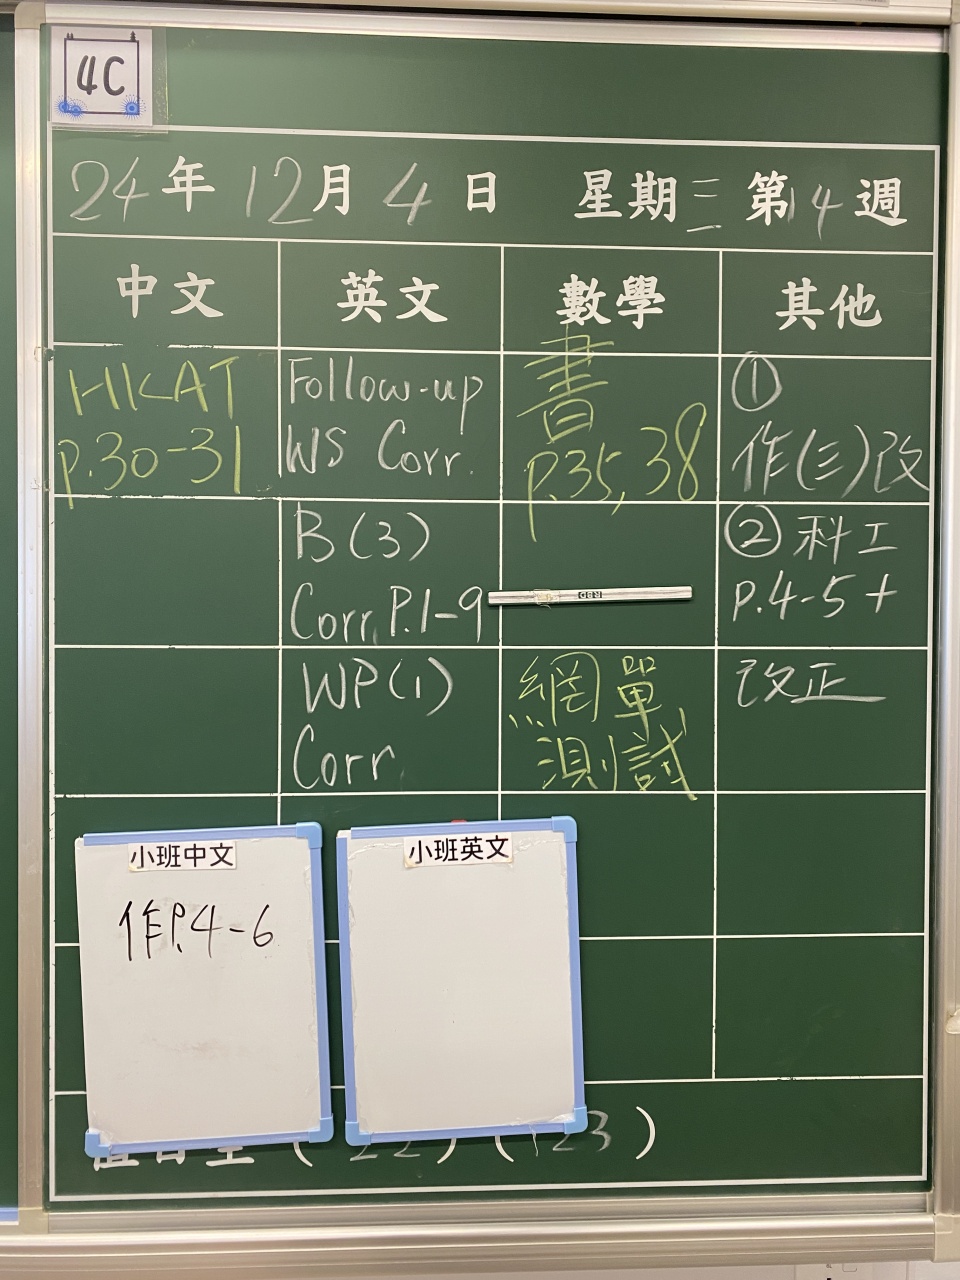 4C
24年12月4日 星期三 第14週
中文 英文 數學 其他
HKAT
p.30-31
Follow-up
WS Corr.
書
p.35,38
①
作(三)改
B(3)
Corr. P.1-9
②科工
P.4-5+
WP(1)
Corr.
網單
測試
改正
小班中文
作P.4-6
小班英文
值日生 (22) (23)